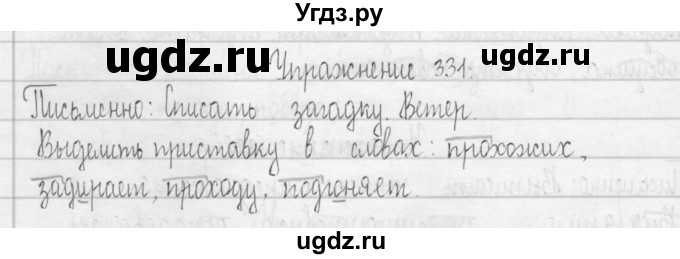 Угдз.ру
ugdz.ru ugdz.ru
Упражнение 331.
Письменно: Списать загадку. Ветер.
Выделить приставку в словах: прохожих,
задирает, проходу, подгоняет.
ugdz.ru ugdz.ru
ugdz.ru